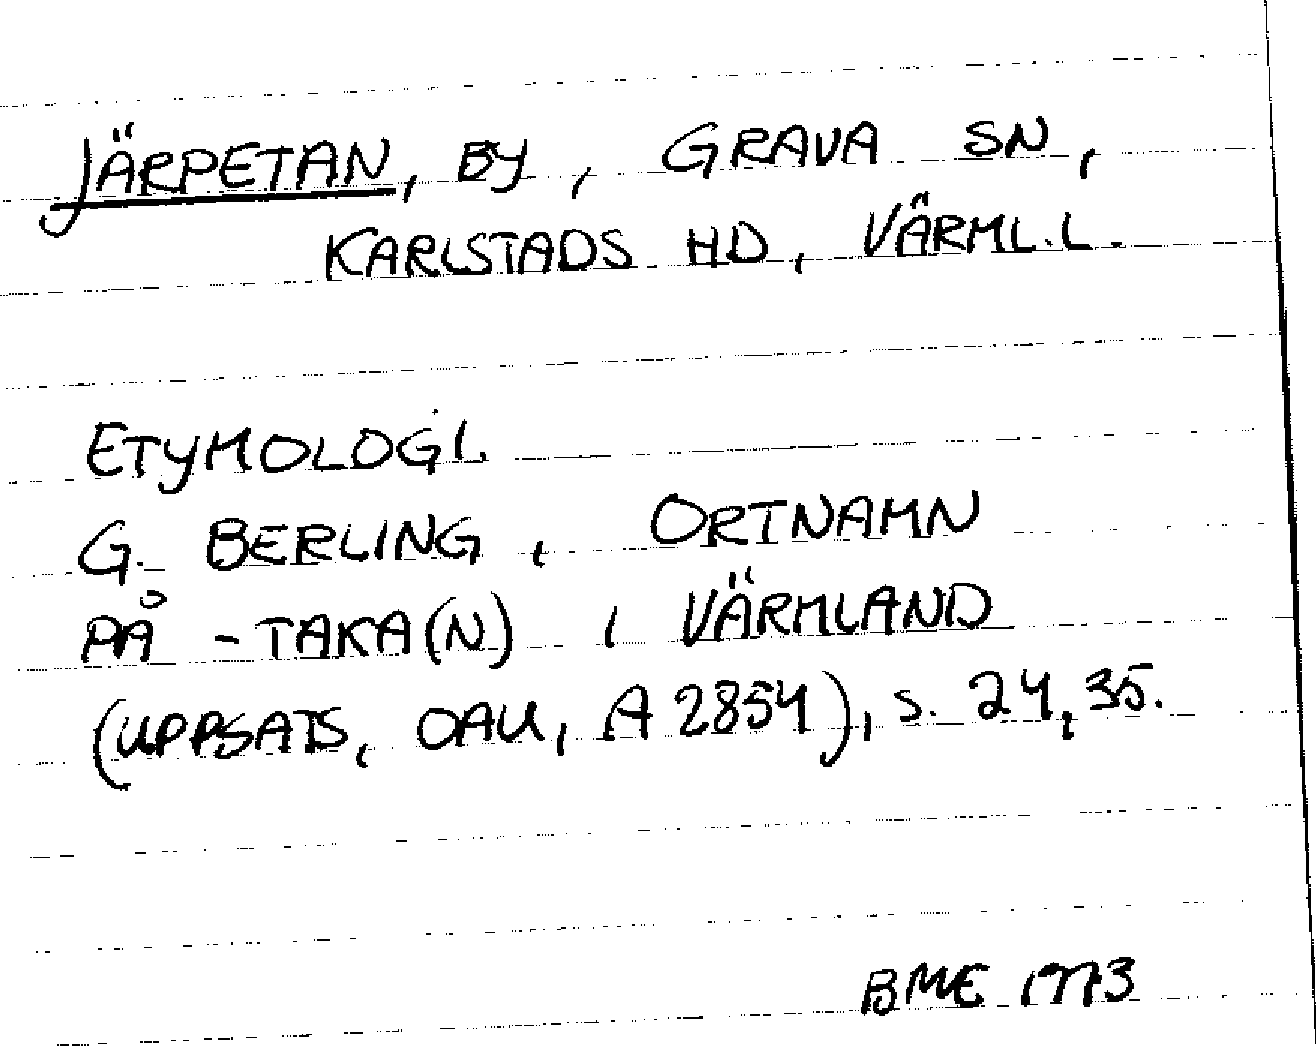 JÄRPETAN, BY, GRAVA SN,
KARLSTADS HD, VÄRML. L.
ETYMOLOGI.
G. BERLING, ORTNAMN
PÅ -TAKA(N) I VÄRMLAND
(UPPSATS, OAU, A 2854), S. 24, 35.
BME 1973